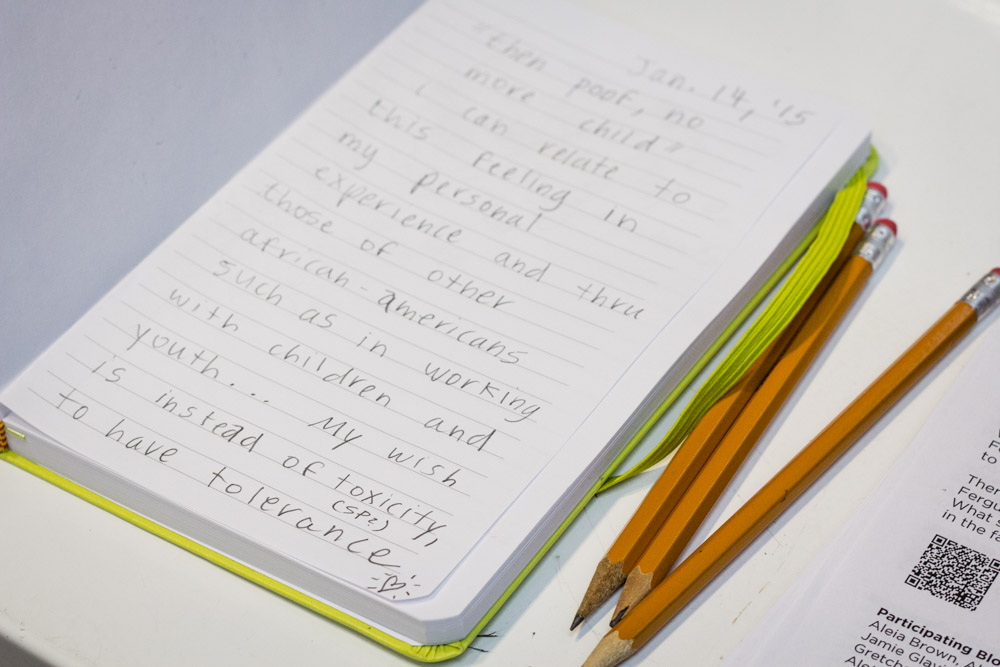 Jan. 14, '15
"then poof, no
more child"
i can relate to
this feeling in
my personal
experience and thru
those of other
african-americans
such as in working
with children and
youth... My wish
is instead of toxicity,
(sp?)
to have tolerance
to
Ther
Fergu
What s
in the fa
Participating Blo
Aleia Brown, Al
Jamie Glav
Gretch